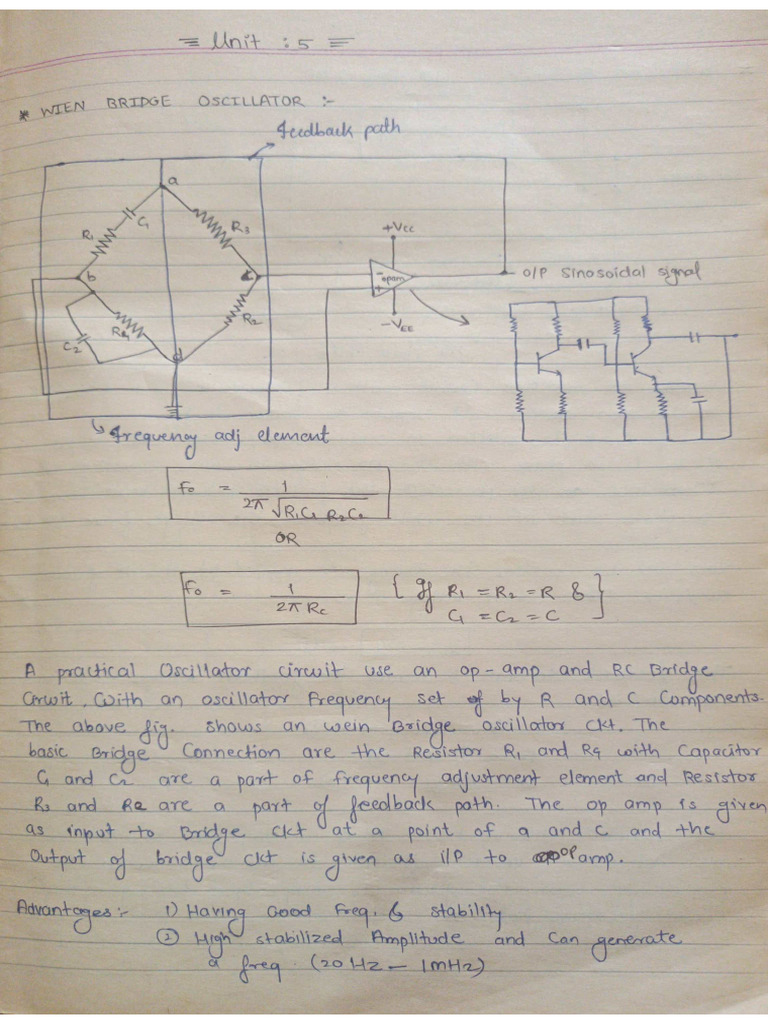 = Unit : 5 =
* WIEN BRIDGE OSCILLATOR :-
feedback path
a
C1
R1
R3
+Vcc
b
c
-
opam
+
O/P Sinosoidal signal
R4
R2
C2
-VEE
d
frequency adj element
Fo = 1
2π √R1C1 R2C2
OR
Fo = 1 { If R1 = R2 = R &
2π Rc C1 = C2 = C }
A practical Oscillator circuit use an op-amp and RC Bridge
Circuit, With an oscillator Frequency set by R and C Components.
The above fig. shows an wein Bridge oscillator ckt. The
basic Bridge Connection are the Resistor R1 and R4 with Capacitor
C1 and C2 are a part of frequency adjustment element and Resistor
R3 and R2 are a part of feedback path. The op amp is given
as input to Bridge ckt at a point of a and c and the
Output of bridge ckt is given as i/P to op amp.
Advantages:- 1) Having Good Freq. & stability
② High stabilized Amplitude and Can generate
a freq (20 Hz - 1 mHz)